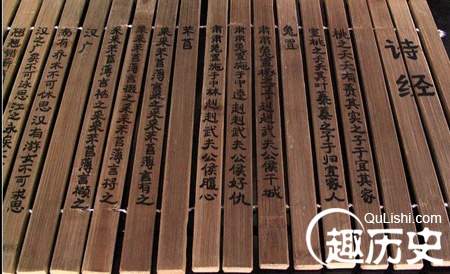 诗经
桃之夭夭有蕡其实之子于宜其家
室桃之夭其叶蓁蓁之子于归宜家人
兔罝
肃肃兔罝椓之丁赳赳武夫公侯干城
肃肃兔罝施于中逵赳赳武夫公侯好仇
肃肃兔罝施于中林赳赳武夫公侯腹心
芣苢
采采芣苢薄言采之采采芣苢薄言有之
采采芣苢薄言掇之采采芣苢薄言捋之
采采芣苢薄言袺之采采芣苢薄言襭之
汉广
南有乔木不可休思汉有游女不可求思
汉之广矣不可泳思江之永矣不
翘翘错薪
QuLiShi.com
趣历史